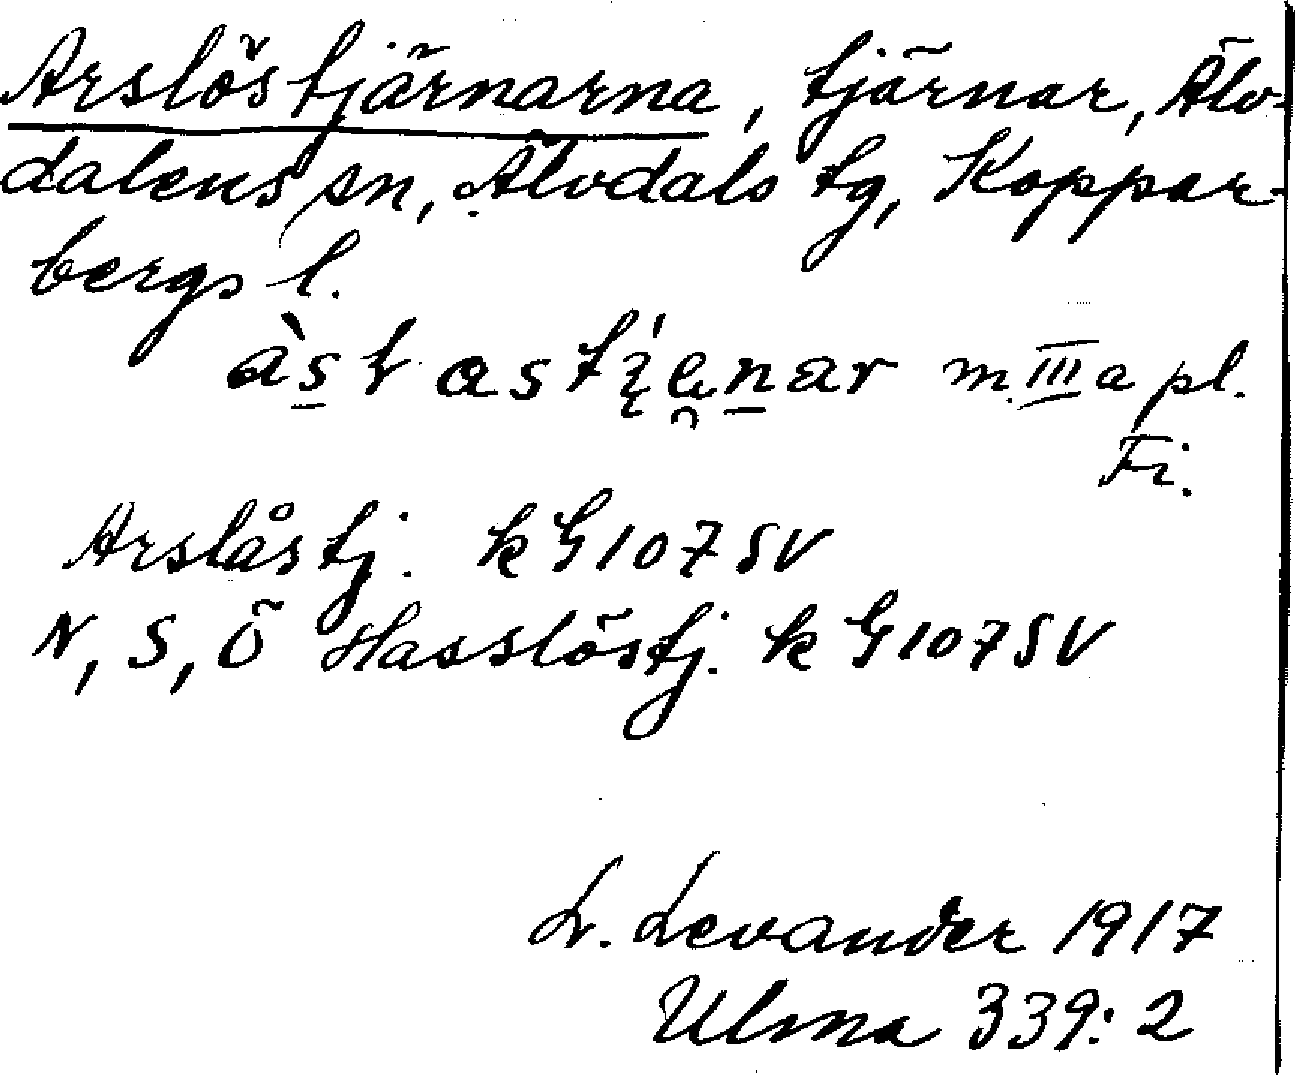 Arslöstjärnarna, tjärnar, Älv-
dalens sn, Älvdals tg, Koppar-
bergs l.
m. III a pl.
Fi.
Arslåstj. k G 107 SV
N, S, Ö Hasslöstj. k G 107 SV
L. Levander 1917
Ulma 339:2